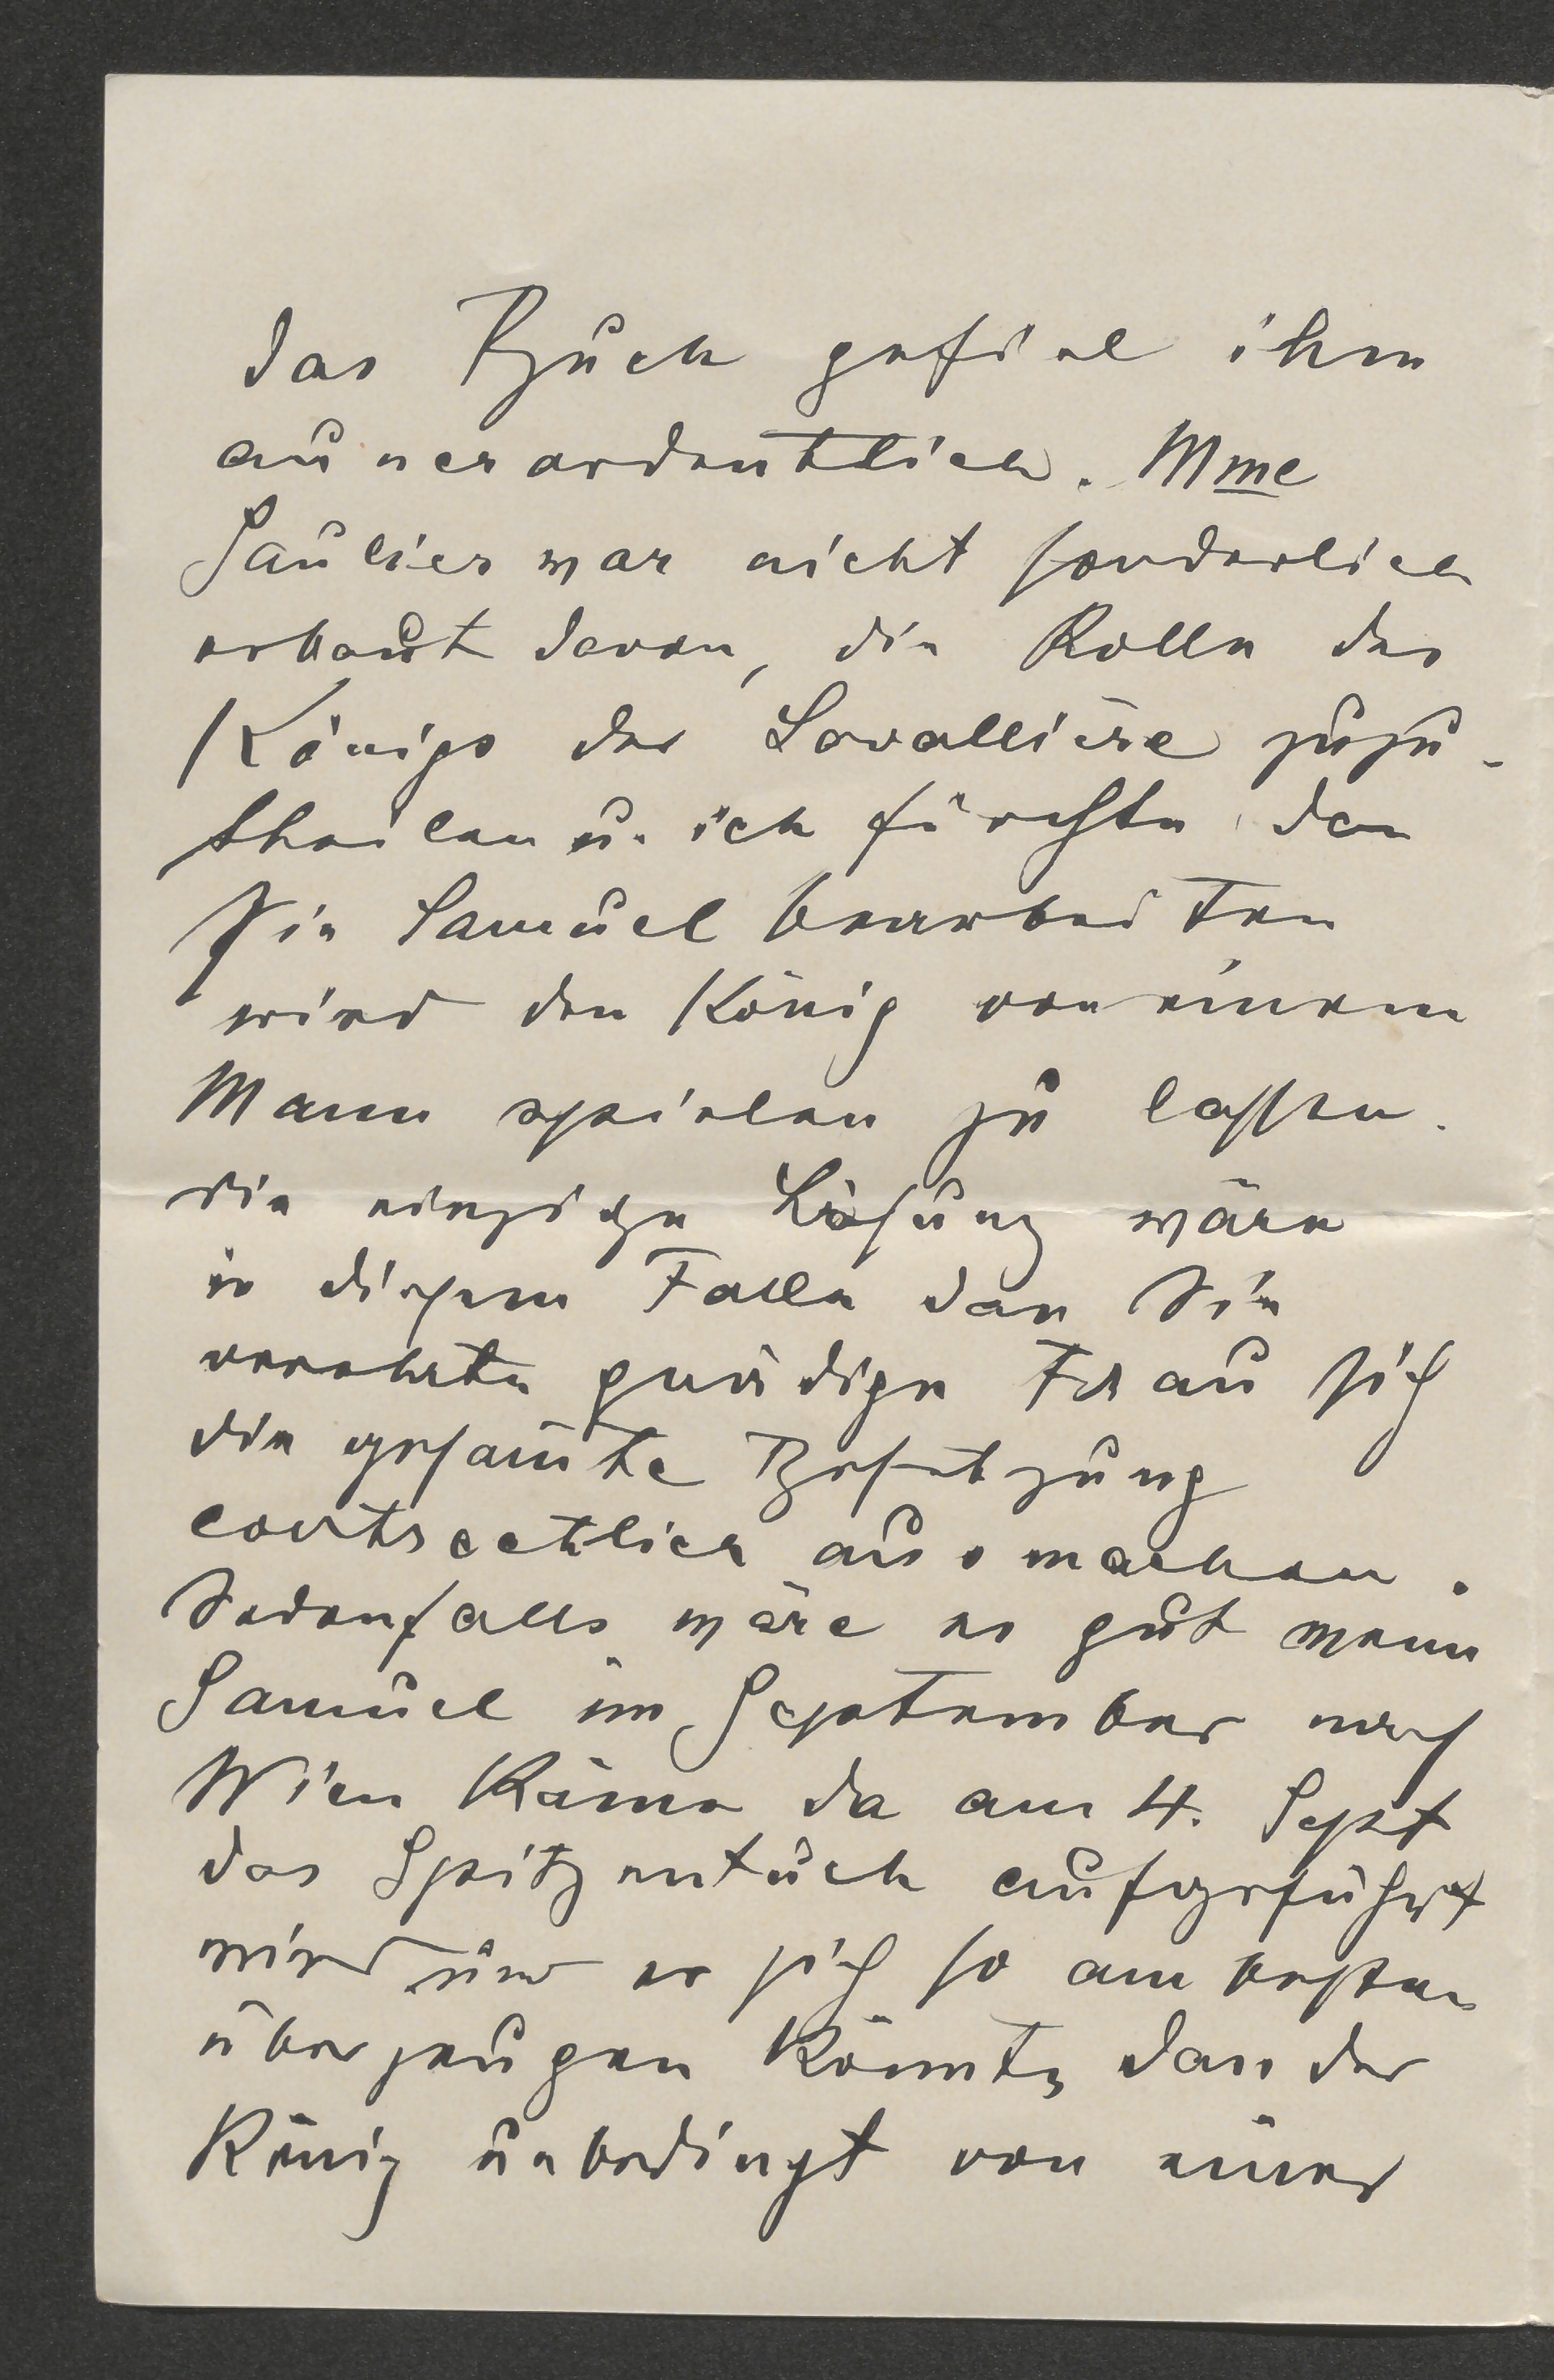 das Buch gefiel ihm
ausserordentlich. Mme
Saulier war nicht sonderlich
erbaut davon, die Rolle des
Königs der Lavallière zuzu-
theilen u. ich fürchte, dass
Sie Samuel bearbeiten
wird den König von einem
Mann spielen zu lassen.
die einzige Lösung wäre
in diesem Falle dass Sie
verehrte gnädige Frau sich
die gesamte Besetzung
contractlich ausmachen.
Jedenfalls wäre es gut wenn
Samuel im September nach
Wien käme da am 4. Sept
das Spitzentuch aufgeführt
wird und er sich so am besten
überzeugen könnte, dass der
König unbedingt von einer